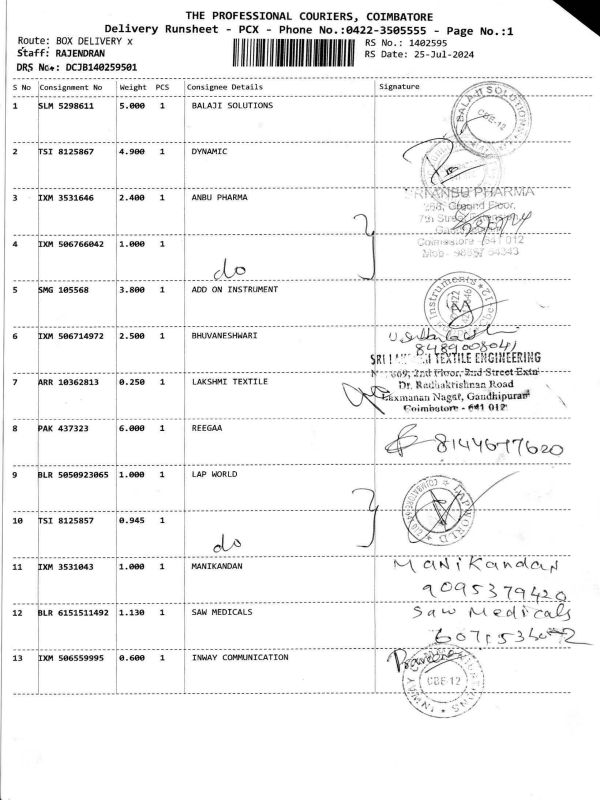 THE PROFESSIONAL COURIERS, COIMBATORE
Delivery Runsheet - PCX - Phone No.:0422-3505555 - Page No.:1
Route: BOX DELIVERY x
RS No.: 1402595
Staff: RAJENDRAN
RS Date: 25-Jul-2024
DRS No.: DCJB140259501
S No Consignment No Weight PCS Consignee Details Signature
1 SLM 5298611 5.000 1 BALAJI SOLUTIONS
BALAJI SOLUTIONS CBE-12
2 TSI 8125867 4.900 1 DYNAMIC
3 IXM 3531646 2.400 1 ANBU PHARMA
SRI ANBU PHARMA
268, Ground Floor,
7th Street
Coimbatore - 641 012
4 IXM 506766042 1.000 1
do
5 SMG 105568 3.800 1 ADD ON INSTRUMENT
6 IXM 506714972 2.500 1 BHUVANESHWARI
8489008041
SRI TEXTILE ENGINEERING
7 ARR 10362813 0.250 1 LAKSHMI TEXTILE
609, 2nd Floor, 2nd Street Extn
Dr. Radhakrishnan Road
Laxmanan Nagar, Gandhipuram
Coimbatore - 641 012
8 PAK 437323 6.000 1 REEGAA
8144677620
9 BLR 5050923065 1.000 1 LAP WORLD
LAP WORLD COIMBATORE
10 TSI 8125857 0.945 1
do
11 IXM 3531043 1.000 1 MANIKANDAN
Manikandan
9095379420
12 BLR 6151511492 1.130 1 SAW MEDICALS
Saw Medicals
13 IXM 506559995 0.600 1 INWAY COMMUNICATION
CBE-12